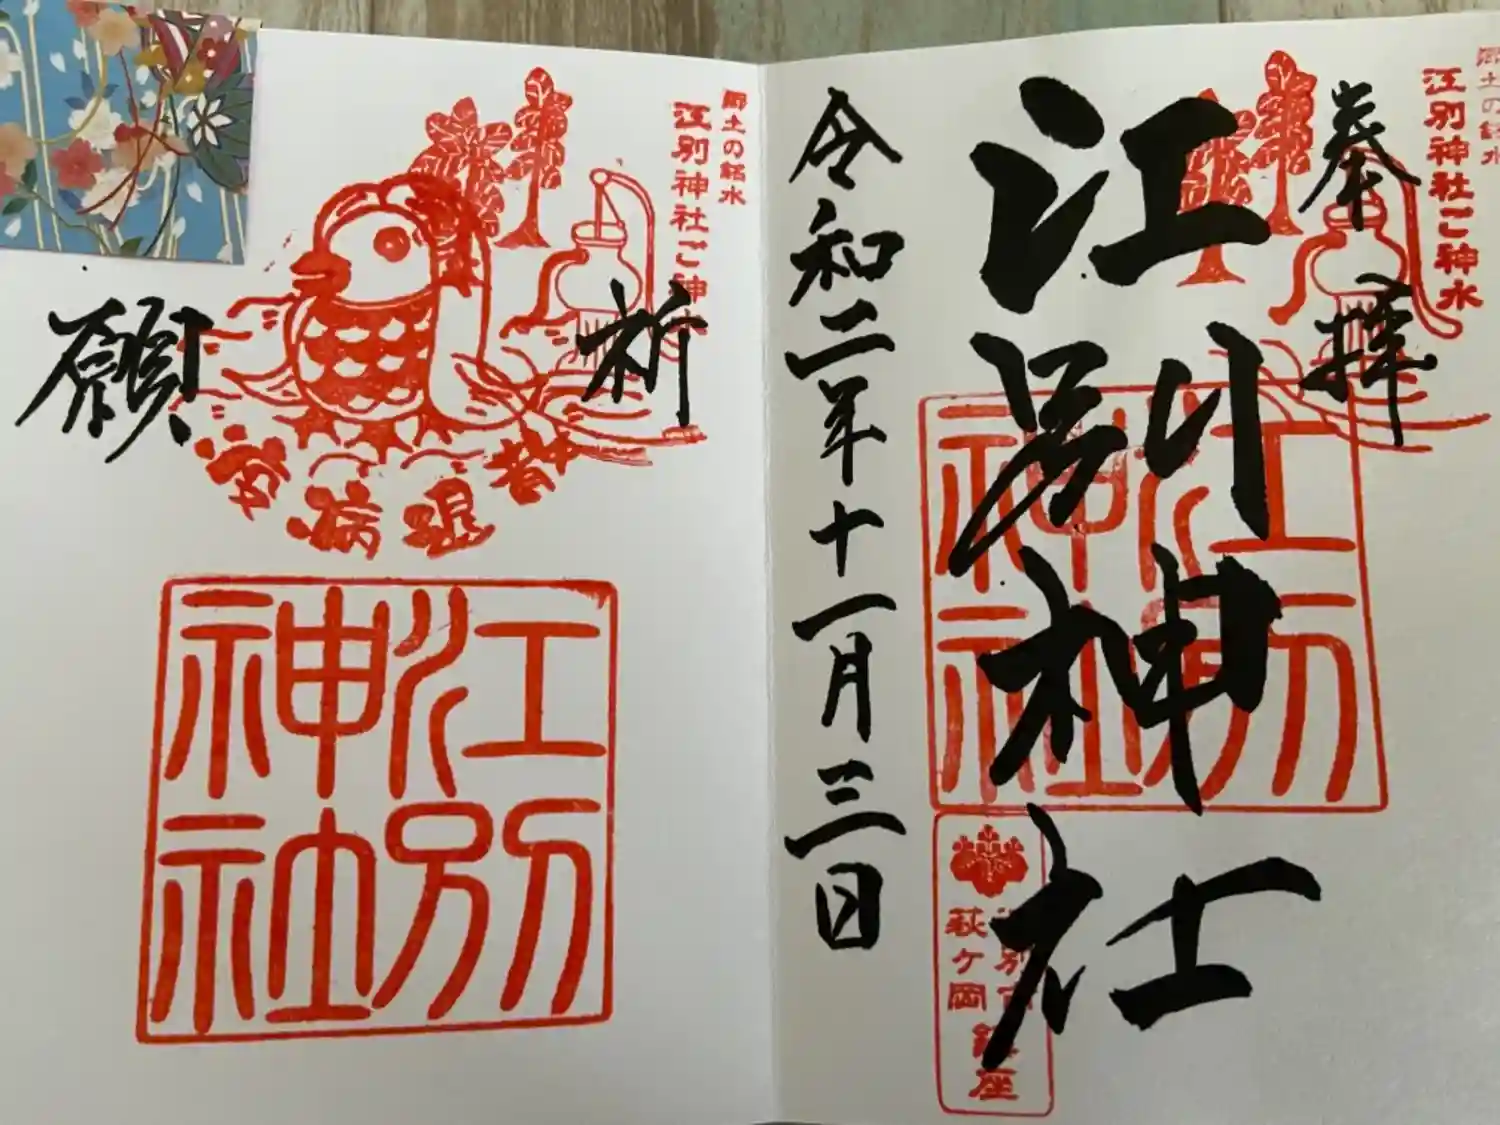 郷土の銘水
江別神社ご神水
奉拝
江別神社
令和二年十一月三日
江別
神社
江別市
萩ヶ岡
鎮座
郷土の銘水
江別神社ご神水
祈
願
疫病退散
江別
神社